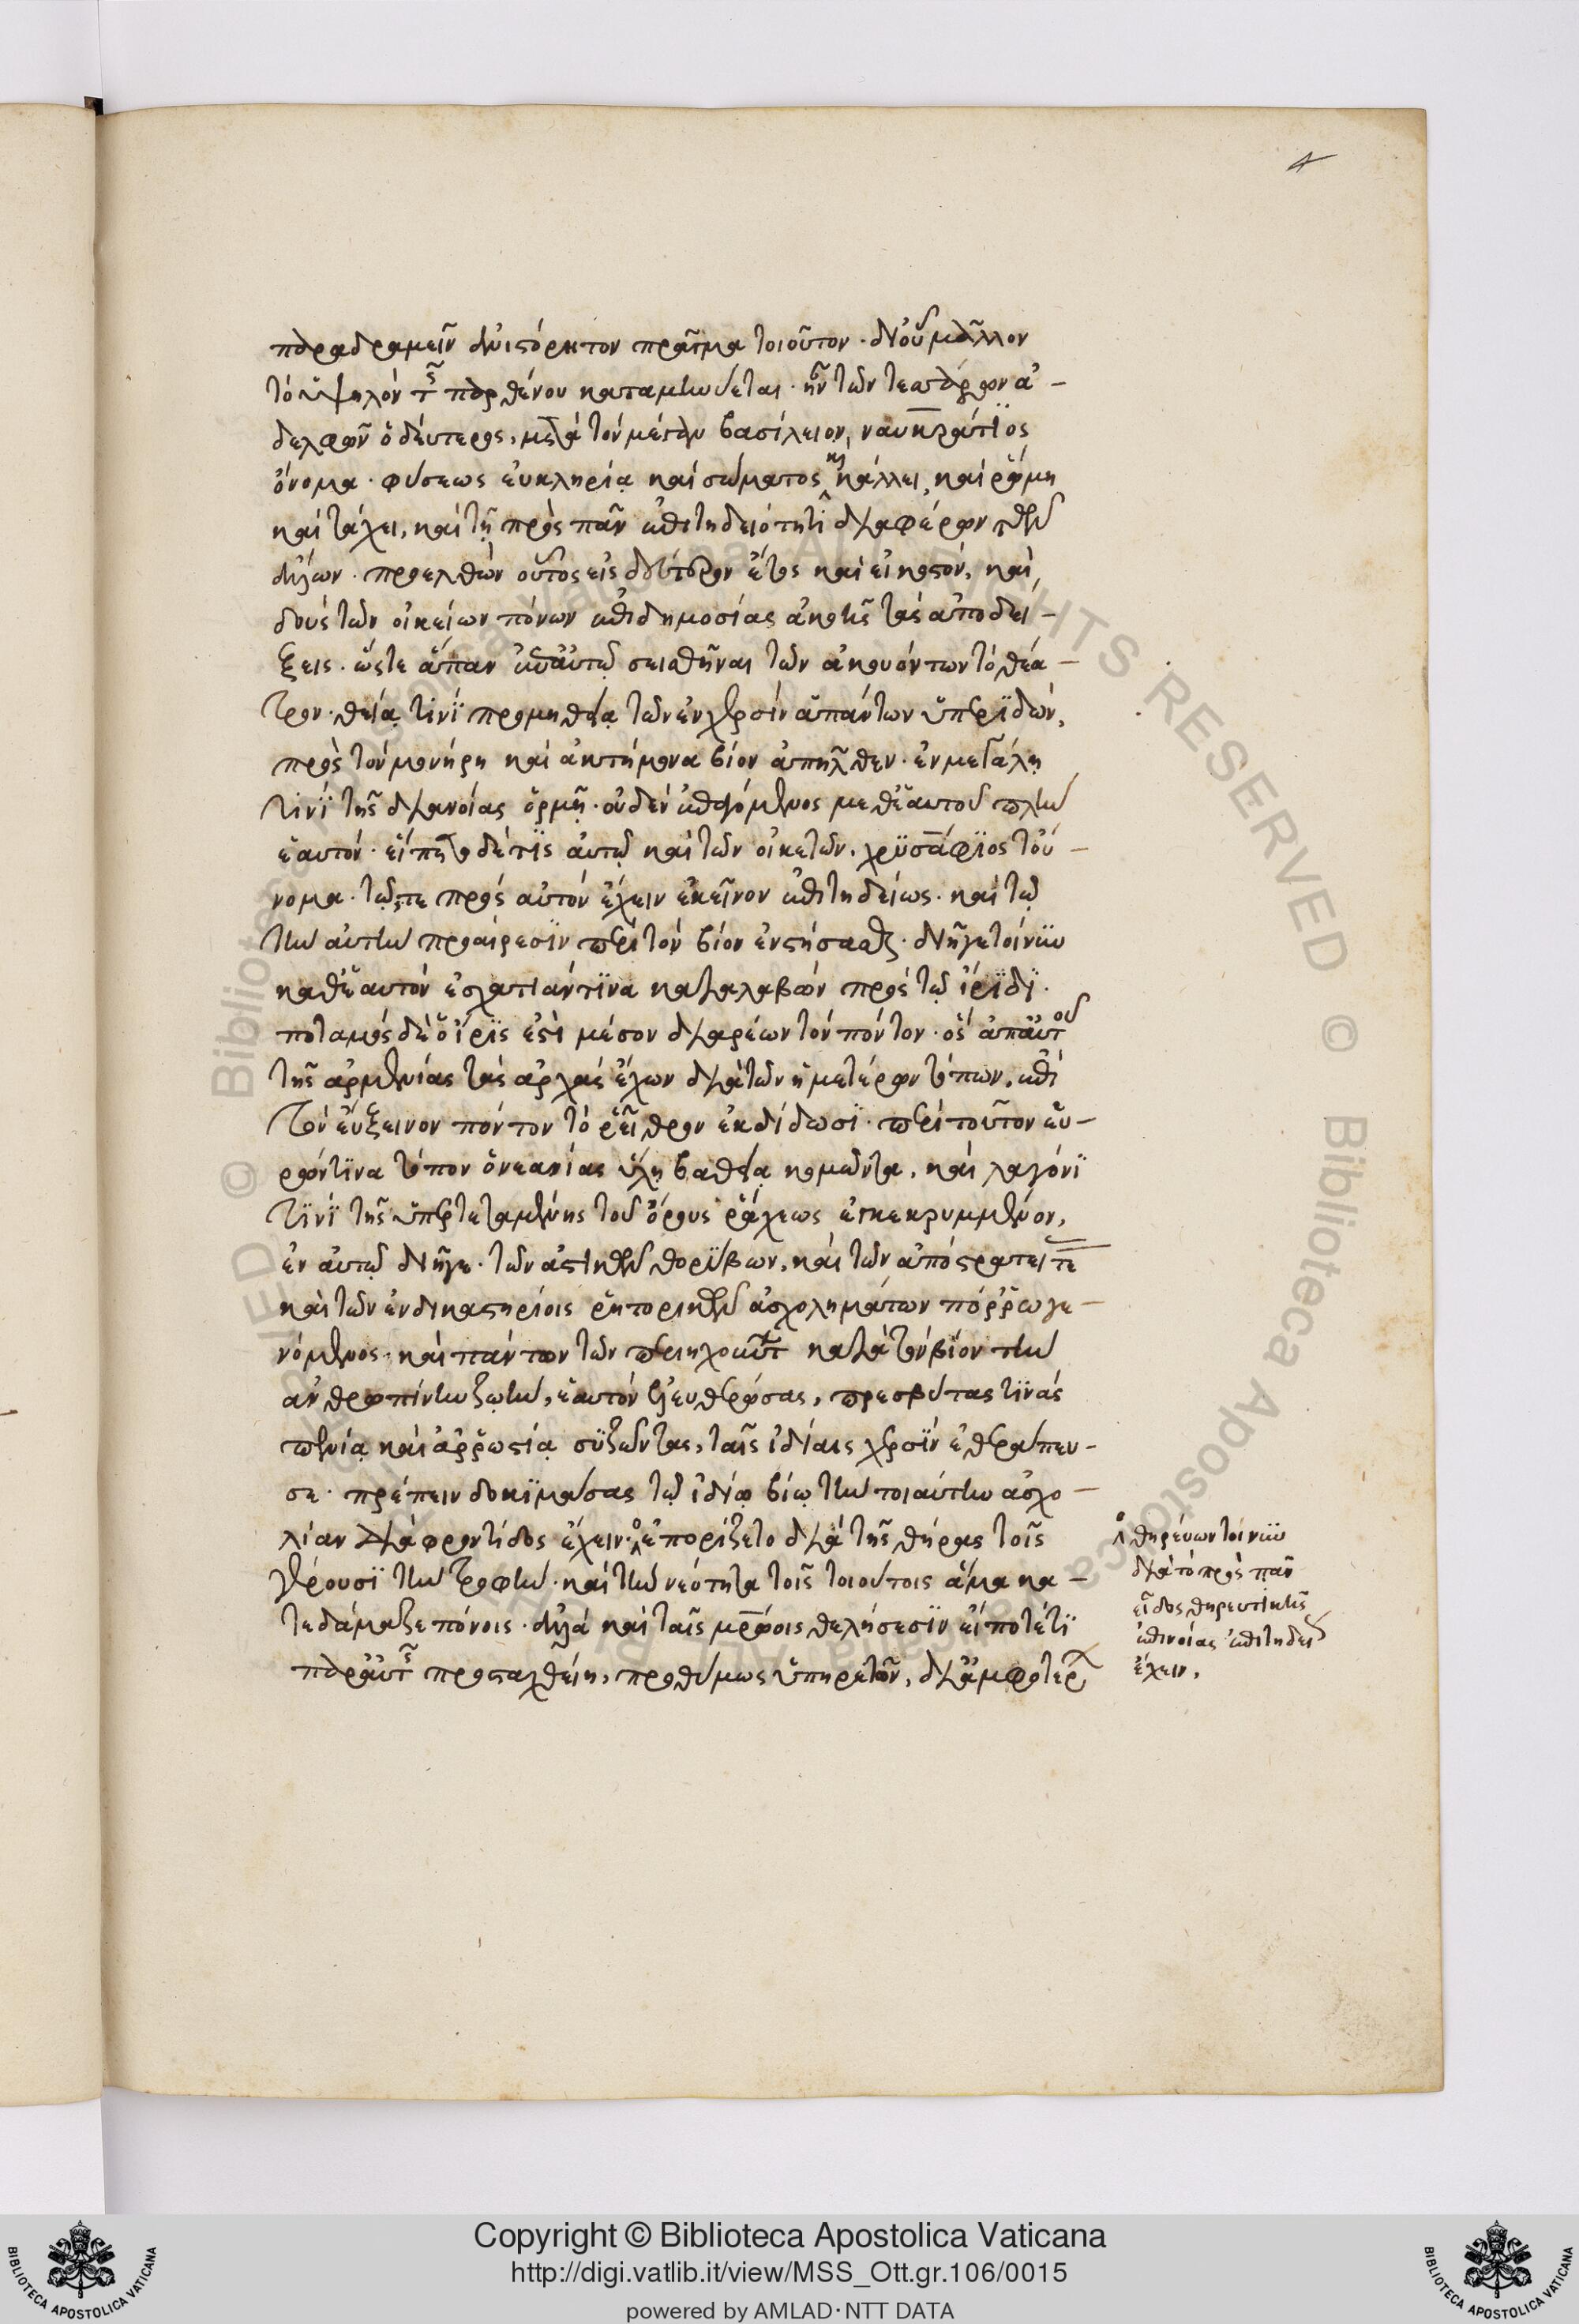 4
παραδραμεῖν ἀνιστόρητον πρᾶγμα τοιοῦτον· δι' οὗ μᾶλλον
τὸ ὑψηλὸν τῆς παρθένου καταμηνύεται· ἦν τῶν τεσσάρων ἀ-
δελφῶν ὁ δεύτερος, μετὰ τὸν μέγαν βασίλειον, ναυκράτιος
ὄνομα· φύσεως εὐκληρία καὶ σώματος καὶ κάλλει, καὶ ῥώμη
καὶ τάχει, καὶ τῇ πρὸς πᾶν ἐπιτηδειότητι διαφέρων τῶν
ἄλλων· προελθὼν οὗτος εἰς δεύτερον ἔτος καὶ εἰκοστόν, καὶ
δοὺς τῶν οἰκείων πόνων ἐπὶ δημοσίας ἀκοῆς τὰς ἀποδεί-
ξεις· ὥστε ἅπαν ἐπ' αὐτῷ σεισθῆναι τῶν ἀκουόντων τὸ θέα-
τρον· θείᾳ τινὶ προμηθείᾳ τῶν ἐν χερσὶν ἁπάντων ὑπεριδών,
πρὸς τὸν μονήρη καὶ ἀκτήμονα βίον ἀπῆλθεν· ἐν μεγάλῃ
τινὶ τῆς διανοίας ὁρμῇ· οὐδὲν ἐπαγόμενος μεθ' ἑαυτοῦ πλὴν
ἑαυτόν· εἵπετο δέ τις αὐτῷ καὶ τῶν οἰκετῶν, χρυσάφιος τοὔ-
νομα· τῷ τε πρὸς αὐτὸν ἔχειν ἐκεῖνον ἐπιτηδείως· καὶ τῷ
τὴν αὐτὴν προαίρεσιν περὶ τὸν βίον ἐνστήσασθαι· διῆγε τοίνυν
καθ' ἑαυτὸν ἐσχατιάν τινα καταλαβὼν πρὸς τῷ ἴριδι·
ποταμὸς δὲ ὁ ἴρις ἐστὶ μέσον διαρέων τὸν πόντον· ὃς ἀπ' αὐτοῦ
τῆς ἀρμενίας τὰς ἀρχὰς ἔχων διὰ τῶν ἡμετέρων τόπων, ἐπὶ
τὸν εὔξεινον πόντον τὸ ῥεῖθρον ἐκδίδωσι· περὶ τοῦτον εὑ-
ρών τινα τόπον ὁ νεανίας ὕλῃ βαθείᾳ κομῶντα, καὶ λαγόνι
τινὶ τῆς ὑπερτεταμένης τοῦ ὄρους ῥάχεως ἐγκεκρυμμένον,
ἐν αὐτῷ διῆγε· τῶν ἀστικῶν θορύβων, καὶ τῶν ἀπὸ στρατείας τε
καὶ τῶν ἐν δικαστηρίοις ῥητορικῶν ἀσχολημάτων πόρρω γε-
νόμενος· καὶ πάντων τῶν περιηχούντων κατὰ τὸν βίον τὴν
ἀνθρωπίνην ζωήν, ἑαυτὸν ἐλευθερώσας, πρεσβύτας τινὰς
πενίᾳ καὶ ἀρρωστίᾳ συζῶντας, ταῖς ἰδίαις χερσὶν ἐθεράπευ-
σε· πρέπειν δοκιμάσας τῷ ἰδίῳ βίῳ τὴν τοιαύτην ἀσχο-
λίαν διὰ φροντίδος ἔχειν· ἐπορίζετο διὰ τῆς θήρας τοῖς
γέρουσι τὴν τροφήν· καὶ τὴν νεότητα τοῖς τοιούτοις ἅμα κα-
τεδάμαζε πόνοις· ἀλλὰ καὶ ταῖς μητρῴοις θελήσεσιν εἴ ποτέ τι
παρ' αὐτῆς προσταχθείη, προθύμως ὑπηρετῶν, δι' ἀμφοτέρων
θηρεύων τοίνυν
διὰ τὸ πρὸς πᾶν
εἶδος θηρευτικῆς
ἐπινοίας ἐπιτηδείως
ἔχειν,
Copyright © Biblioteca Apostolica Vaticana
http://digi.vatlib.it/view/MSS_Ott.gr.106/0015
powered by AMLAD·NTT DATA